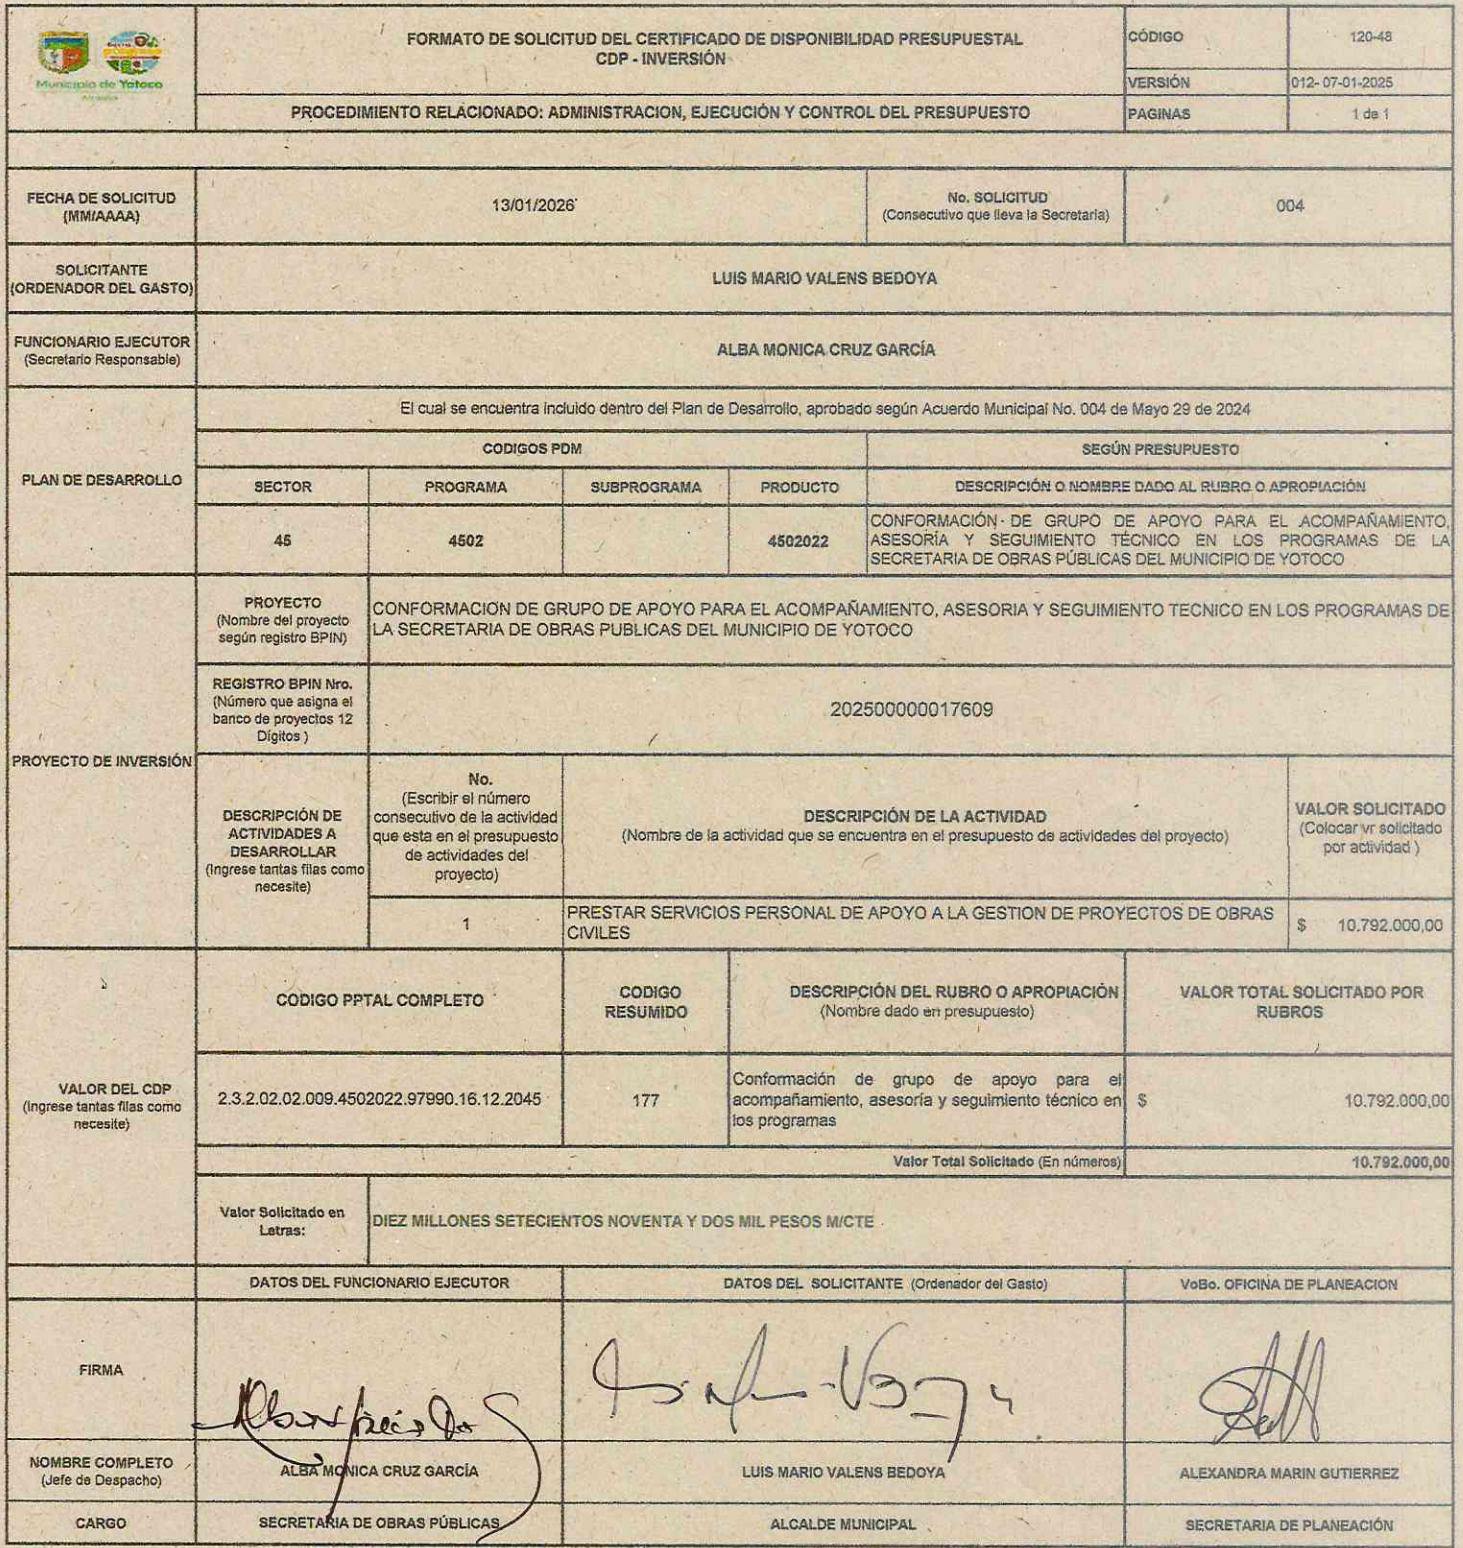 Municipio de Yotoco
FORMATO DE SOLICITUD DEL CERTIFICADO DE DISPONIBILIDAD PRESUPUESTAL
CDP - INVERSIÓN
CÓDIGO
120-48
VERSIÓN
012- 07-01-2025
PROCEDIMIENTO RELACIONADO: ADMINISTRACION, EJECUCIÓN Y CONTROL DEL PRESUPUESTO
PAGINAS
1 de 1
FECHA DE SOLICITUD
(MM/AAAA)
13/01/2026
No. SOLICITUD
(Consecutivo que lleva la Secretaria)
004
SOLICITANTE
(ORDENADOR DEL GASTO)
LUIS MARIO VALENS BEDOYA
FUNCIONARIO EJECUTOR
(Secretario Responsable)
ALBA MONICA CRUZ GARCÍA
PLAN DE DESARROLLO
El cual se encuentra incluido dentro del Plan de Desarrollo, aprobado según Acuerdo Municipal No. 004 de Mayo 29 de 2024
CODIGOS PDM
SEGÚN PRESUPUESTO
SECTOR
PROGRAMA
SUBPROGRAMA
PRODUCTO
DESCRIPCIÓN O NOMBRE DADO AL RUBRO O APROPIACIÓN
45
4502
4502022
CONFORMACIÓN DE GRUPO DE APOYO PARA EL ACOMPAÑAMIENTO,
ASESORÍA Y SEGUIMIENTO TÉCNICO EN LOS PROGRAMAS DE LA
SECRETARIA DE OBRAS PÚBLICAS DEL MUNICIPIO DE YOTOCO
PROYECTO DE INVERSIÓN
PROYECTO
(Nombre del proyecto
según registro BPIN)
CONFORMACION DE GRUPO DE APOYO PARA EL ACOMPAÑAMIENTO, ASESORIA Y SEGUIMIENTO TECNICO EN LOS PROGRAMAS DE
LA SECRETARIA DE OBRAS PUBLICAS DEL MUNICIPIO DE YOTOCO
REGISTRO BPIN Nro.
(Número que asigna el
banco de proyectos 12
Dígitos )
202500000017609
DESCRIPCIÓN DE
ACTIVIDADES A
DESARROLLAR
(Ingrese tantas filas como
necesite)
No.
(Escribir el número
consecutivo de la actividad
que esta en el presupuesto
de actividades del
proyecto)
DESCRIPCIÓN DE LA ACTIVIDAD
(Nombre de la actividad que se encuentra en el presupuesto de actividades del proyecto)
VALOR SOLICITADO
(Colocar vr solicitado
por actividad )
1
PRESTAR SERVICIOS PERSONAL DE APOYO A LA GESTION DE PROYECTOS DE OBRAS
CIVILES
$ 10.792.000,00
VALOR DEL CDP
(Ingrese tantas filas como
necesite)
CODIGO PPTAL COMPLETO
CODIGO
RESUMIDO
DESCRIPCIÓN DEL RUBRO O APROPIACIÓN
(Nombre dado en presupuesto)
VALOR TOTAL SOLICITADO POR
RUBROS
2.3.2.02.02.009.4502022.97990.16.12.2045
177
Conformación de grupo de apoyo para el
acompañamiento, asesoría y seguimiento técnico en
los programas
$ 10.792.000,00
Valor Total Solicitado (En números)
10.792.000,00
Valor Solicitado en
Letras:
DIEZ MILLONES SETECIENTOS NOVENTA Y DOS MIL PESOS M/CTE
DATOS DEL FUNCIONARIO EJECUTOR
DATOS DEL SOLICITANTE (Ordenador del Gasto)
VoBo. OFICINA DE PLANEACION
FIRMA
NOMBRE COMPLETO
(Jefe de Despacho)
ALBA MONICA CRUZ GARCÍA
LUIS MARIO VALENS BEDOYA
ALEXANDRA MARIN GUTIERREZ
CARGO
SECRETARIA DE OBRAS PÚBLICAS
ALCALDE MUNICIPAL
SECRETARIA DE PLANEACIÓN